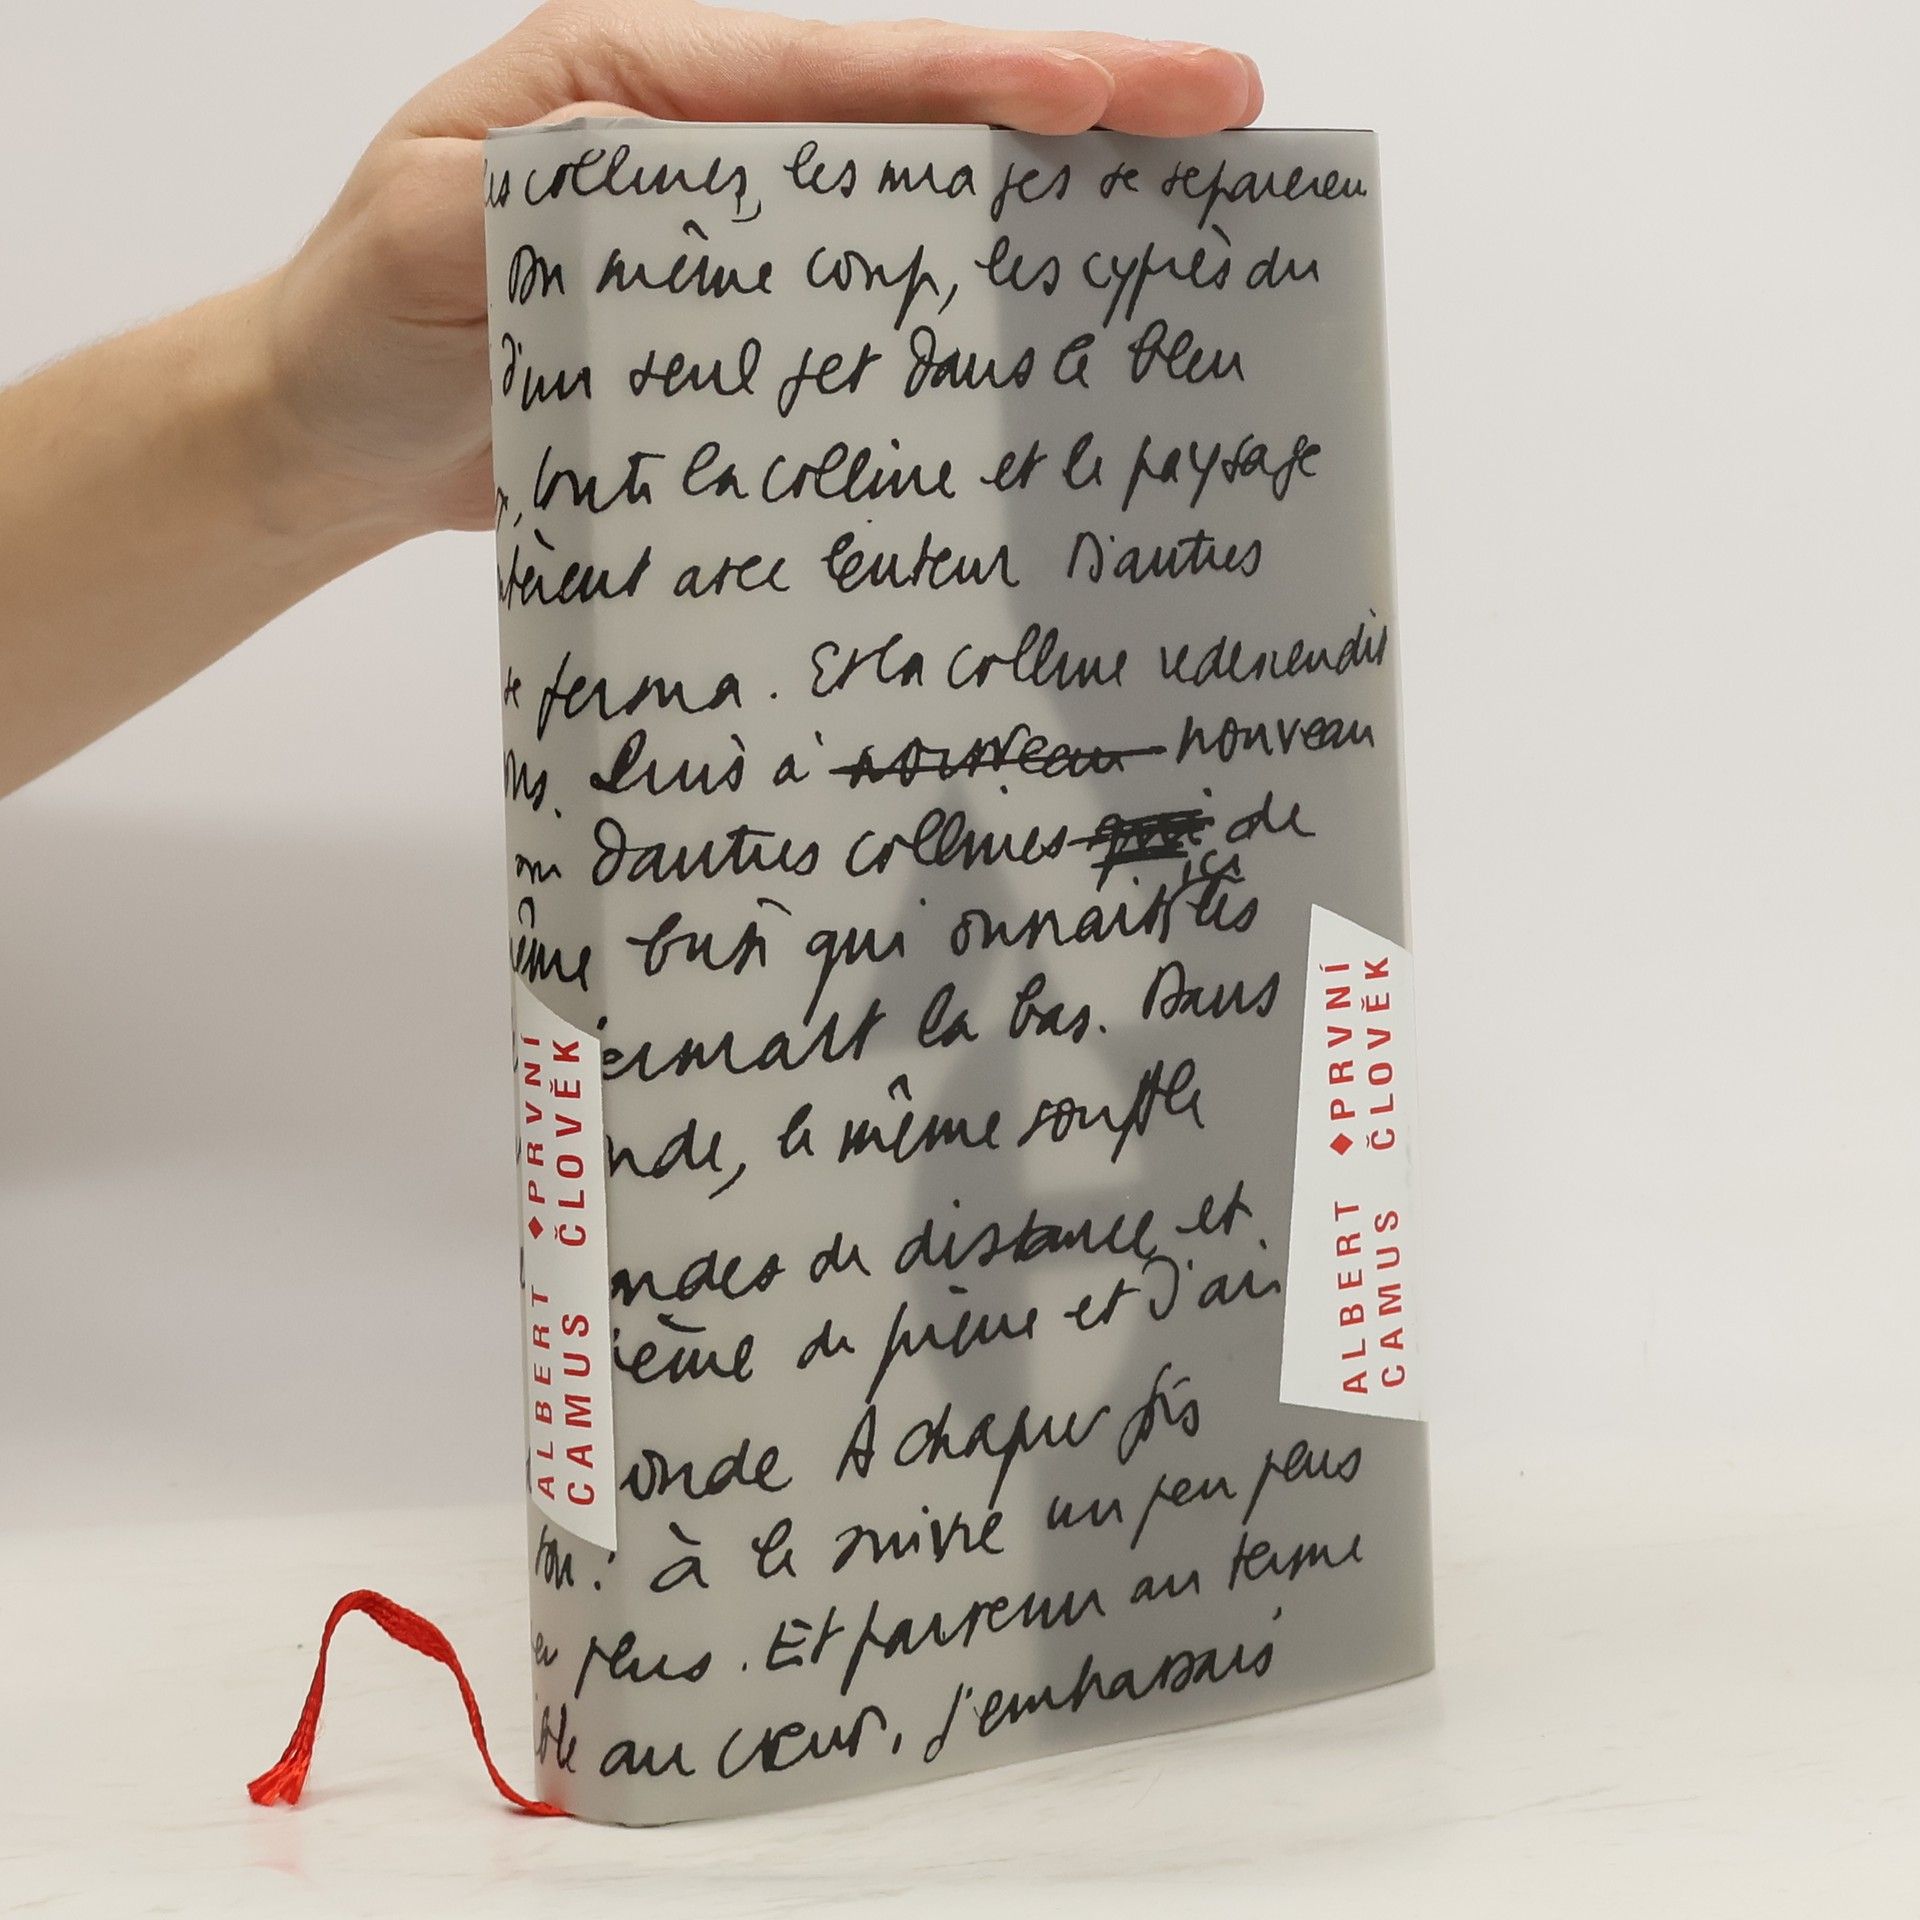 collines, les nuages se séparèren
Du même coup, les cyprès du
d'un seul jet dans le bleu
toute la colline et le paysage
avec lenteur D'autres
se ferma. Et la colline redescendit
Puis à nouveau nouveau
D'autres collines qui de
ici
même qui les
la bas. Dans
nde, le même souffle
ondes de distance et
de pierre et d'air
onde A chaque fois
: à le suivre un peu plus
plus. Et parvenu au terme
au cœur, j'embrassais
ALBERT ♦PRVNÍ
CAMUS ČLOVĚK
ALBERT ♦PRVNÍ
CAMUS ČLOVĚK